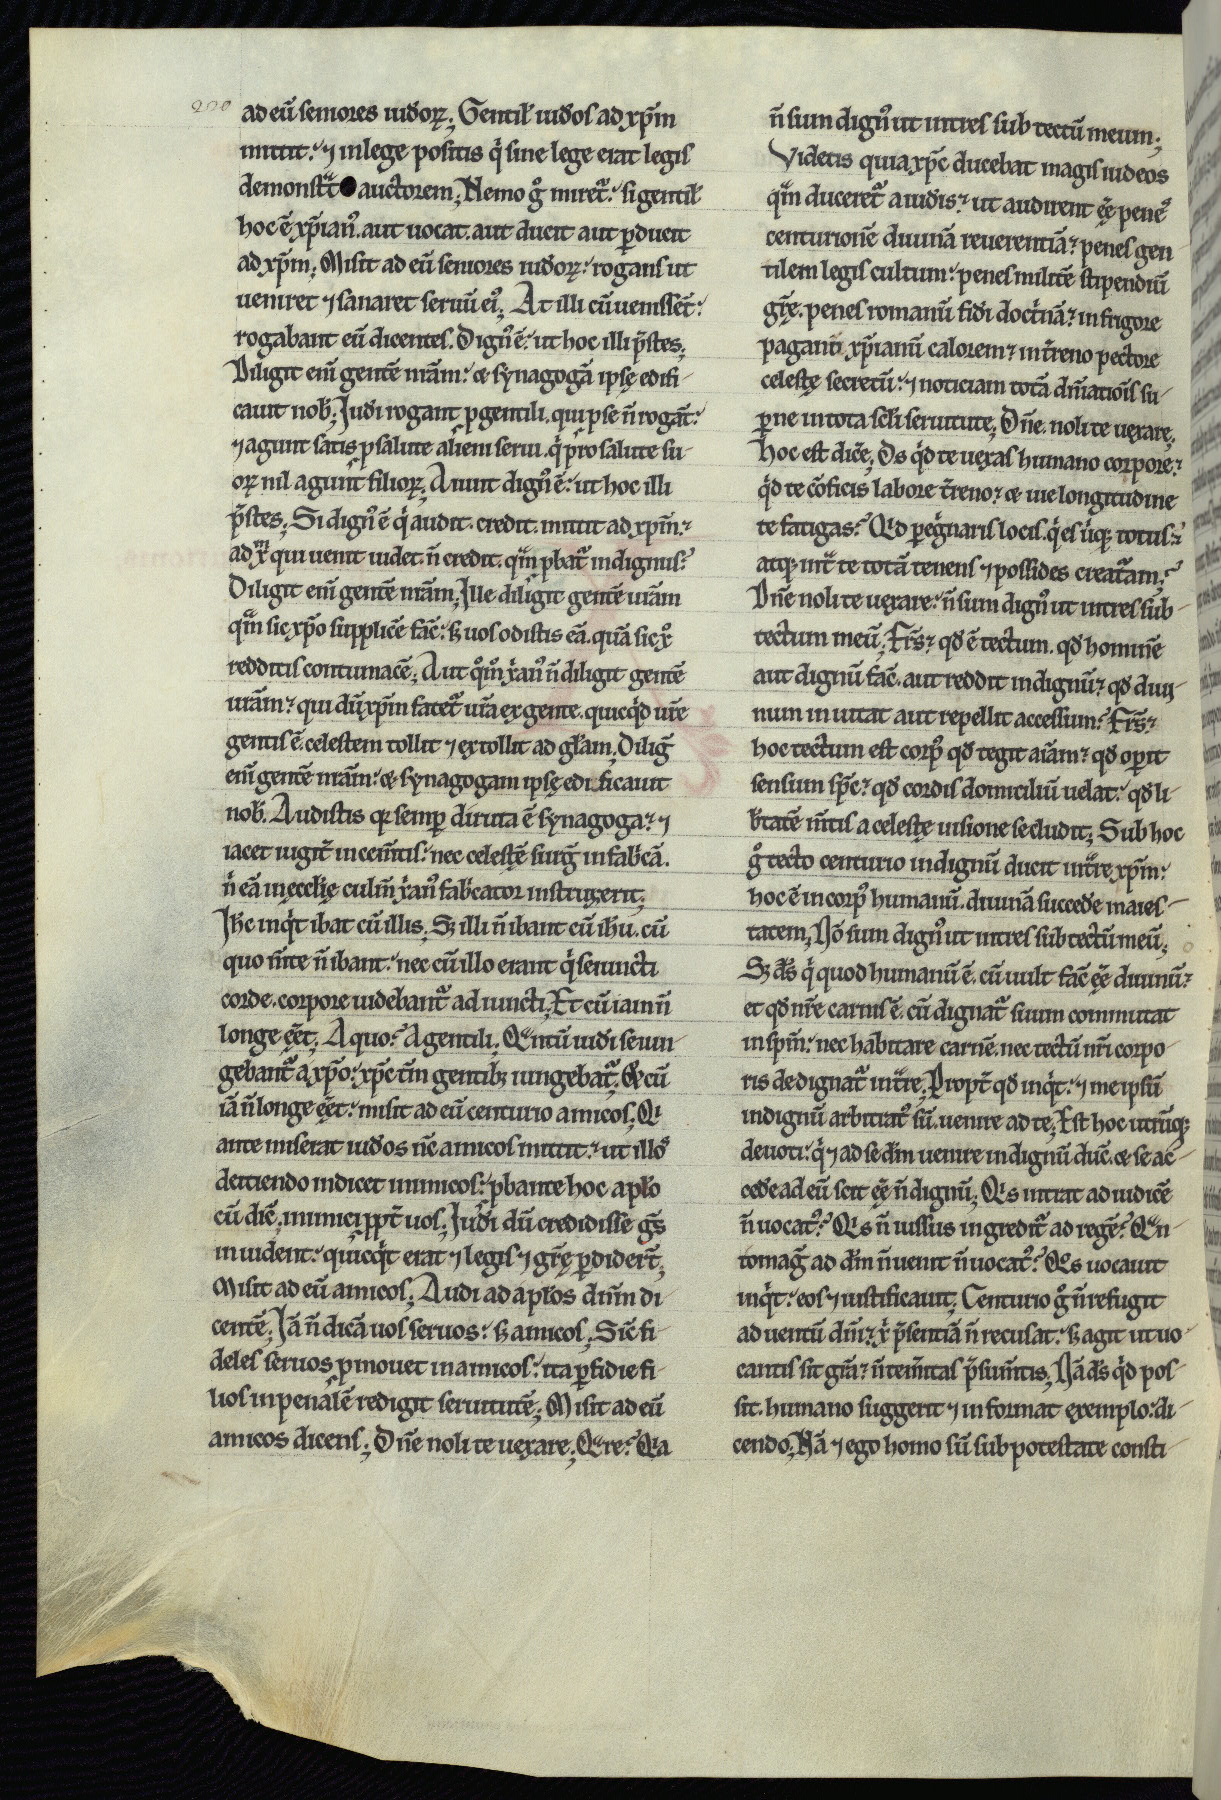 220
ad eū seniores iudoꝝ; Gentil' iudos ad xp̄m
mittit: ⁊ in lege positis q̇ sine lege erat legis
demonst̄t auctorem; Nemo g̊ miret᷑: si gentil'
hoc ē xp̄ian᷒. aut uocat. aut ducit aut ꝑducit
ad xp̄m; Misit ad eū seniores iudoꝝ: rogans ut
ueniret ⁊ sanaret seruū ei᷒; At illi cū uenissēt:
rogabant eū dicentes. Dign᷒ ē: ut hoc illi p̄stes;
Diligit eni᷒ gentē nrām: & synagogā ipsę edifi-
cauit nob'; Iudi rogant ꝓ gentili. qui ꝓ se n̄ rogāt:
⁊ agunt satis ꝓ salute alieni serui. q̇ pro salute su-
oꝝ nil agunt filioꝝ; Aiunt dign᷒ ē: ut hoc illi
p̄stes; Si dign᷒ ē q̇ audit. credit. mittit ad xp̄m:
ad xm̄ qui uenit uidet. n̄ credit. qm̄ ꝓbat᷑ indignus?
Diligit eni᷒ gentē nrām; Ille diligit gentē urām
qm̄ sic xp̄o supplicē fac̄: sꝫ uos odistis eā. quā sic x᷒
redditis contumacē; Aut qm̊ x̄an᷒ n̄ diligit gentē
urām? qui dū xp̄m facet᷑ ur̄a ex gente. quicq̇d ur̄e
gentis ē. celestem tollit ⁊ extollit ad gl̄am; Diliḡ
eni᷒ gentē nrām: & synagogam ipsę edificauit
nob'. Audistis qꝛ semꝑ diruta ē synagoga? ⁊
iacet iugit᷑ in cem̄tis: nec celestē surg̃ in fab'cā.
n̄ eā in ęcclię culm̄ x̄an᷒ fab'cator instruxerit;
Ih̄c inq̇t ibat cū illis; Sꝫ illi n̄ ibant cū ih̄u. cū
quo m̄te n̄ ibant: nec cū illo erant q̇ seiuncti
corde. corpore uidebant᷑ ad iuncti; Et cū iam n̄
longe ēet; A quo? A gentili; Qᵃntū iudi seiun-
gebant᷑ a xp̄o: xp̄c tm̄ gentibꝫ iungebat᷑. & cū
iā n̄ longe ēet: misit ad eū centurio amicos; Qi
ante miserat iudos nc̄ amicos mittit? ut illos
detiendo indicet inimicos: ꝓbante hoc aplo
cū diē; inimici ꝓpt̄ uos; Iudi dū credidisse gs̄
inuident: quicq̇t erat ⁊ legis ⁊ gr̄ę ꝑdider̄t;
Misit ad eū amicos; Audi ad aplos dn̄m di-
centē; Iā n̄ dicā uos seruos: sꝫ amicos; Sic̄ fi-
deles seruos ꝓmouet in amicos: ita ꝑfidie fi-
uos in penalē redigit seruitutē; Misit ad eū
amicos dicens; Dn̄e noli te uexare; Qᵃre? Qia
n̄ sum dign᷒ ut intres sub tectū meum;
Videtis quia xp̄c ducebat magis iudeos
qm̄ duceret᷑ a iudis: ut audirent ēē pene᷒
centurionē diuinā reuerentiā? penes gen
tilem legis cultum: penes militē stipendiū
gr̄ę. penes romanū fidi doct'nā: in frigore
pagani xp̄ianū calorem? in t̄reno pectore
celestę secretū: ⁊ noticiam totā dn̄atiōis su-
ꝑne in tota sc̄li seruitute; Dn̄e. noli te uexare;
Hoc est dic̄e; Ds q̇d te uexas humano corpore?
q̇d te cōficis labore t̄reno? & uie longitudine
te fatigas? Qd ꝑeg̃naris locis. q̇ es u̇qꝫ totus?
atqꝫ int᷑ te totā tenens ⁊ possides creat᷑am?
Dn̄e noli te uexare: n̄ sum dign᷒ ut intres sub
tectum meū; Frs̄? qd̄ ē tectum. qd̄ hominē
aut dignū fac̄. aut reddit indignū? qd̄ diui-
num inuitat aut repellit accessum? Frs̄?
hoc tectum est corp᷒ qd̄ tegit aīam? qd̄ oꝑit
sensum sp̄c? qd̄ cordis domiciliū uelat: qd̄ li-
b'tatē m̄tis a celestę uisione secludit; Sub hoc
g̊ tecto centurio indignū ducit int᷑re xp̄m:
hoc ē in corp᷒ humanū. diuinā succede maies-
tacem; Nō sum dign᷒ ut intres sub tectū meū;
Sꝫ ds̄ q̇ quod humanū ē. cū uult fac̄ ēē diuinū?
et qd̄ nr̄e carnis ē. cū dignat᷑ suum commutat
in spm̄: nec habitare carnē. nec tectū nr̄i corpo
ris dedignat᷑ int᷑re; Propt̄ qd̄ inq̇t: ⁊ me ipsū
indignū arbitrat᷒ sū. uenire ad te; Est hoc utrūqꝫ
deuoti: q̇ ⁊ ad se dm̄ uenire indignū duc̄. & se ac-
cede ad eū scit ēē n̄ dignū; Qis intrat ad iudicē
n̄ uocat᷒? Qis n̄ iussus ingredit᷑ ad regē? Qᵃn-
tomag̃ ad dm̄ n̄ uenit n̄ uocat᷒? Qos uocauit
inq̇t: eos ⁊ iustificauit; Centurio g̊ n̄ refugit
aduentū dn̄i? x̄ p̄sentiā n̄ recusat: sꝫ agit ut uo-
cantis sit gr̄a? n̄ tem̄itas p̄sum̄tis; Nā ds̄ q̇d pos-
sit. humano suggerit ⁊ informat exemplo: di-
cendo; Nā ⁊ ego homo sū sub potestate consti-